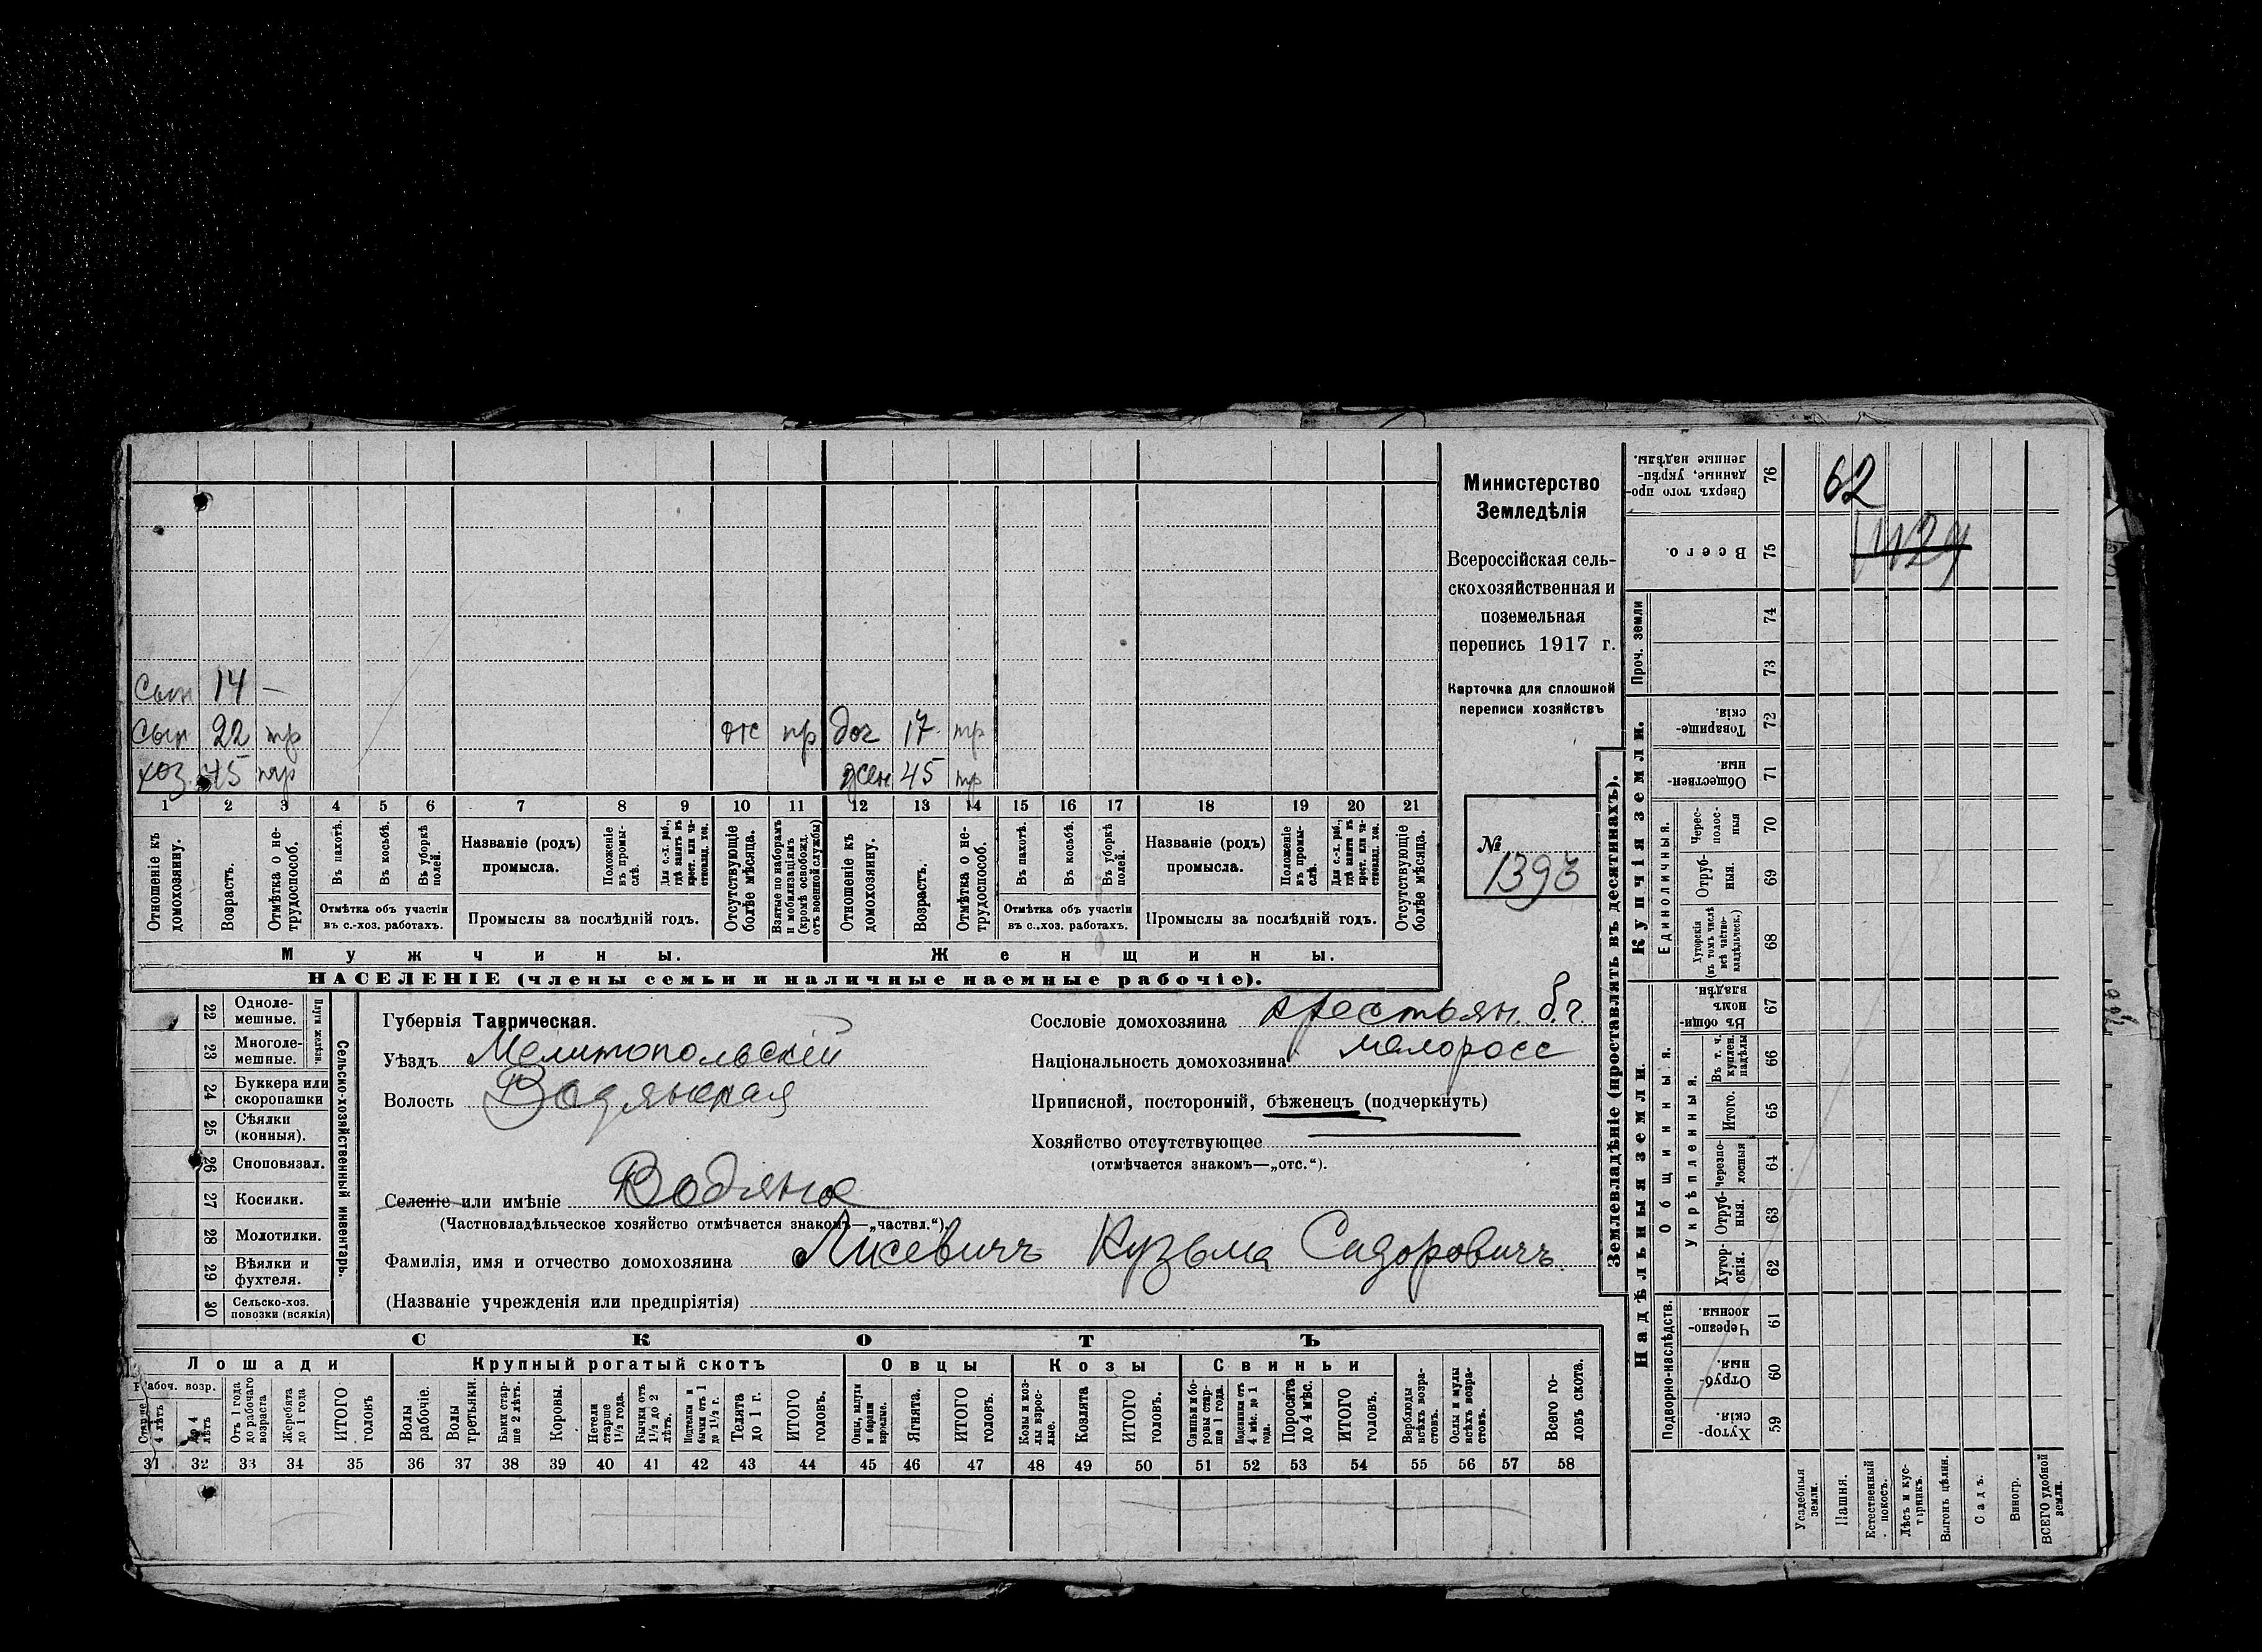 сын 14 —
сын 22 тр отс пр доч 17 тр
хоз. 45 тр жен 45 тр
1 2 3 4 5 6 7 8 9 10 11 12 13 14 15 16 17 18 19 20 21
Отношеніе къ домохозяину.
Возрастъ.
Отмѣтка о нетрудоспособ.
Въ пахотѣ.
Въ косьбѣ.
Въ уборкѣ полей.
Отмѣтка объ участіи въ с.-хоз. работахъ.
Названіе (родъ) промысла.
Положеніе въ промыслѣ.
Для с.-х. раб., гдѣ занятъ въ крест. или частновлад. хоз.
Промыслы за послѣдній годъ.
Отсутствующіе болѣе мѣсяца.
Взятые по наборамъ и мобилизаціямъ (кромѣ освобожд. отъ военной службы)
Отношеніе къ домохозяину.
Возрастъ.
Отмѣтка о нетрудоспособ.
Въ пахотѣ.
Въ косьбѣ.
Въ уборкѣ полей.
Отмѣтка объ участіи въ с.-хоз. работахъ.
Названіе (родъ) промысла.
Положеніе въ промыслѣ.
Для с.-х. раб., гдѣ занята въ крест. или частновлад. хоз.
Промыслы за послѣдній годъ.
Отсутствующіе болѣе мѣсяца.
Мужчины. Женщины.
НАСЕЛЕНІЕ (члены семьи и наличные наемные рабочіе).
Министерство
Земледѣлія
Всероссійская сель-
скохозяйственная и
поземельная
перепись 1917 г.
Карточка для сплошной
переписи хозяйствъ
№
1393
Сельско-хозяйственный инвентарь.
Плуги желѣзн.
22 Одноле-
мешные.
23 Многоле-
мешные.
24 Буккера или
скоропашки
25 Сѣялки
(конныя).
26 Сноповязал.
27 Косилки.
28 Молотилки.
29 Вѣялки и
фухтеля.
30 Сельско-хоз.
повозки (всякія)
Губернія Таврическая.
Уѣздъ Мелитопольскій
Волость Водянская
Селеніе или имѣніе Водяно
(Частновладѣльческое хозяйство отмѣчается знакомъ—„частвл.“).
Фамилія, имя и отчество домохозяина Лисевичъ Кузьма Сидоровичъ.
(Названіе учрежденія или предпріятія)
Сословіе домохозяина крестьян. б. г.
Національность домохозяина малоросс
Приписной, посторонній, бѣженецъ (подчеркнуть)
Хозяйство отсутствующее
(отмѣчается знакомъ—„отс.“).
СКОТЪ
Лошади Крупный рогатый скотъ Овцы Козы Свиньи
Рабоч. возр.
Старше 4 лѣтъ
До 4 лѣтъ
Отъ 1 года до рабочаго возраста
Жеребята до 1 года
ИТОГО головъ
Волы рабочіе.
Волы третьяки.
Быки старше 2 лѣтъ.
Коровы.
Нетели старше 1½ года.
Бычки отъ 1½ до 2 лѣтъ.
Подтелки и бычки отъ 1 до 1½ г.
Телята до 1 г.
ИТОГО головъ.
Овцы, валухи и бараны взрослые.
Ягнята.
ИТОГО головъ.
Козы и козлы взрослые.
Козлята
ИТОГО головъ.
Свиньи и боровы старше 1 года.
Подсвинки отъ 4 мѣс. до 1 года.
Поросята до 4 мѣс.
ИТОГО головъ.
Верблюды всѣхъ возрастовъ.
Ослы и мулы всѣхъ возрастовъ.
Всего головъ скота.
31 32 33 34 35 36 37 38 39 40 41 42 43 44 45 46 47 48 49 50 51 52 53 54 55 56 57 58
Землевладѣніе (проставлять въ десятинахъ).
Купчія земли.
Надѣльныя земли.
76 Сверхъ того проданные, укрѣпленные надѣлы.
62
75 Всего.
1124
Проч. земли
74
73
72 Товарищескія.
71 Общественныя
Единоличныя.
70 Черес-
полос-
ныя
69 Отруб-
ныя.
68 Хуторскія (въ томъ числѣ всѣ частновладѣльческ.)
Общинныя.
67 Въ общинномъ владѣн.
Укрѣпленныя.
66 Въ т. ч. куплен. надѣлы
65 Итого.
64 черезпо-
лосныя
63 Отруб-
ныя.
62 Хутор-
скія.
Подворно-наслѣдств.
61 Черезпо-
лосныя.
60 Отруб-
ныя.
59 Хутор-
скія.
Усадебныя земли.
Пашня.
Естественный покосъ.
Лѣсъ и кустарникъ.
Выгонъ цѣлин.
Садъ.
Виногр.
ВСЕГО удобной земли.